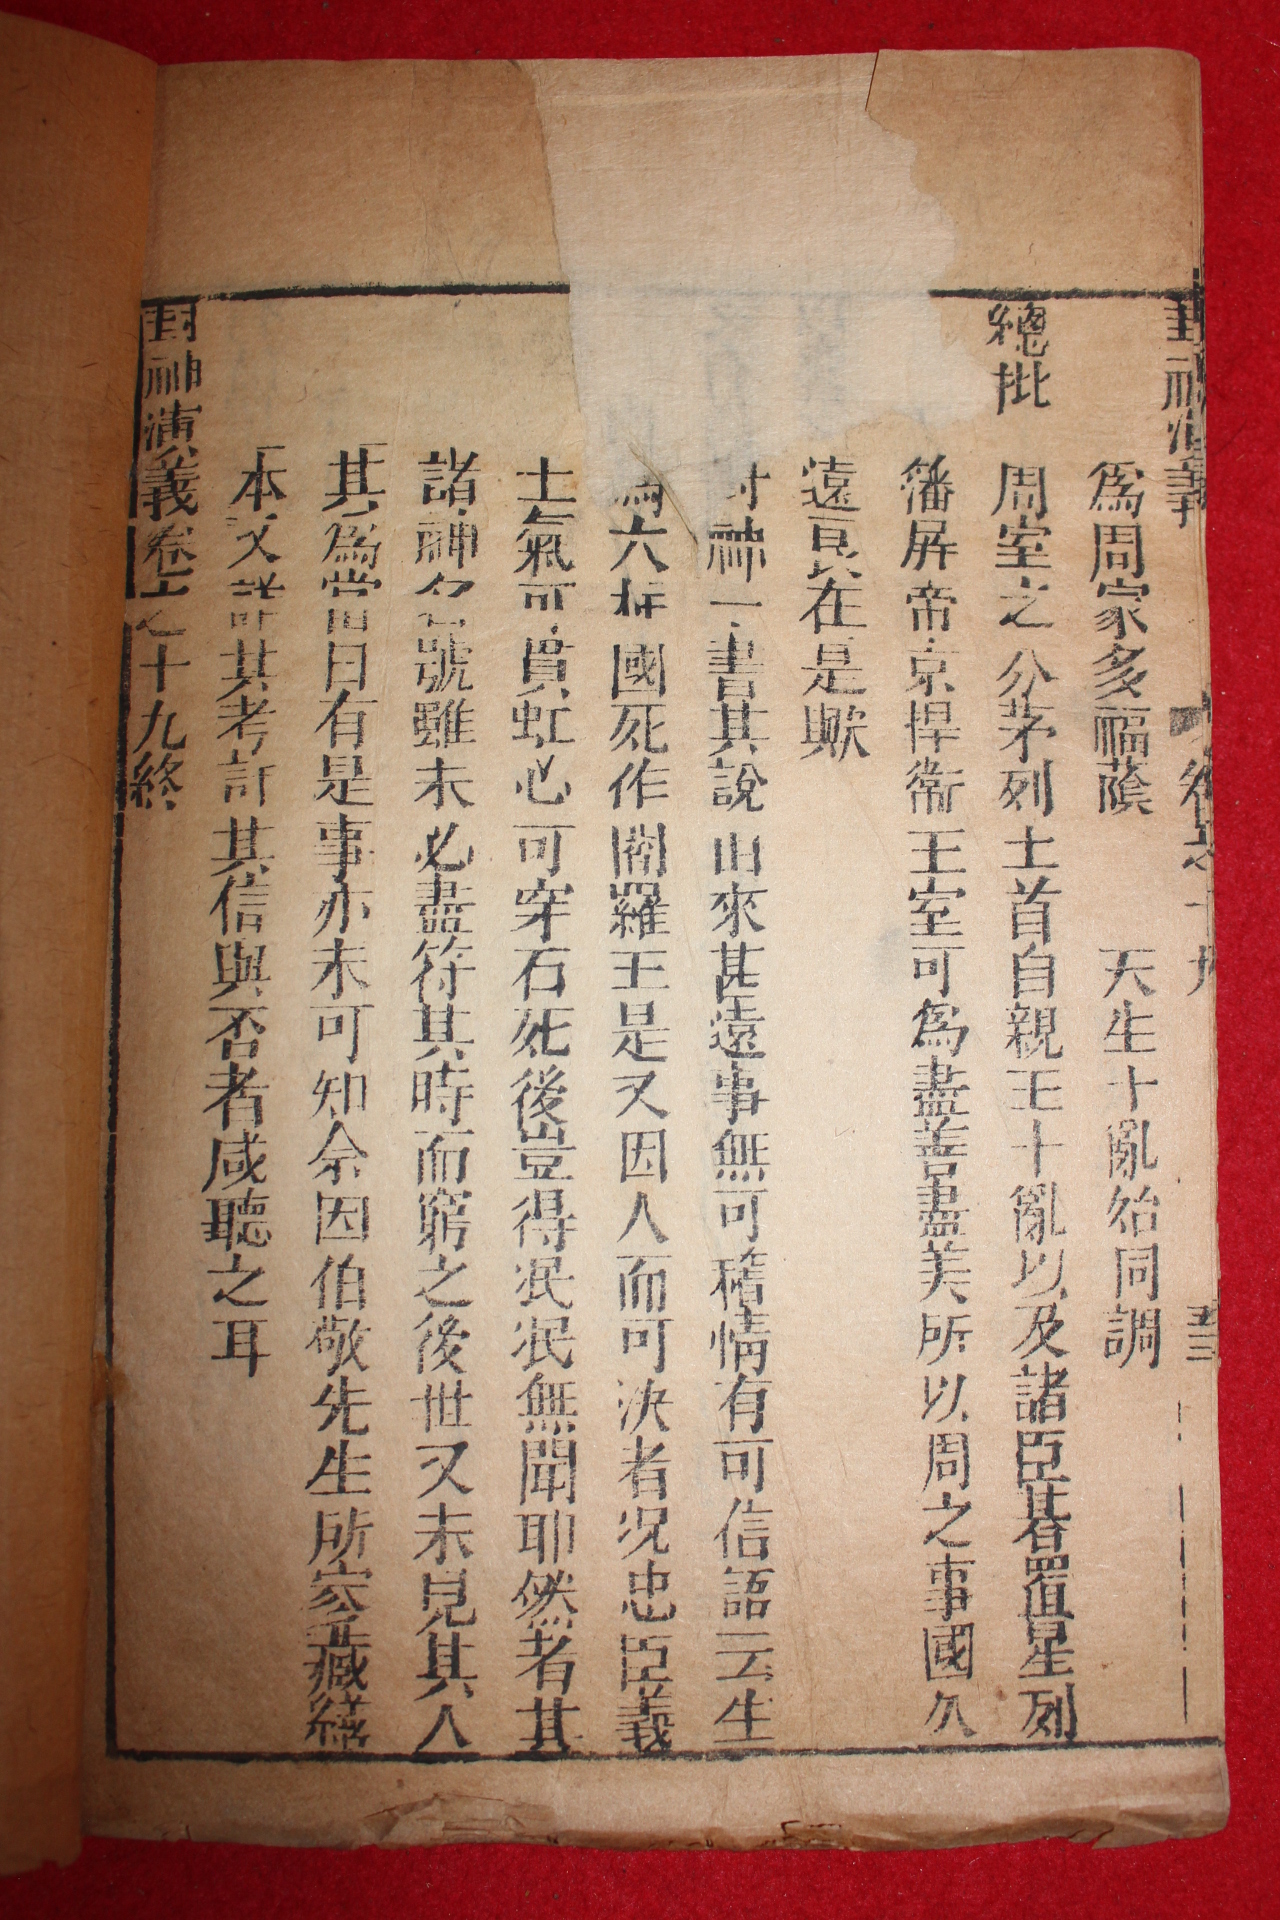 封神演義 卷之十九 五三
爲周家多福蔭 天生十亂始同調
總批 周室之分茅列土首自親王十亂以及諸臣碁置星列
籓屏帝京捍衞王室可爲盡善盡美所以周之事國久
遠良在是歟
封神一書其說由來甚遠事無可稽情有可信語云生
爲六柱國死作閻羅王是又因人而可決者况忠臣義
士氣可貫虹心可穿石死後豈得泯泯無聞耶然者其
諸神名號雖未必盡符其時而窮之後世又未見其人
其爲當日有是事亦未可知余因伯敬先生所家藏繕
本又詳其考訂其信與否者咸聽之耳
封神演義卷之十九終